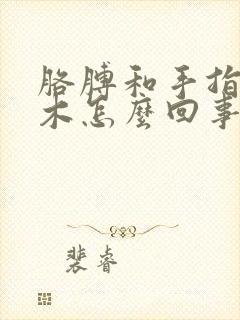 胳膊和手指
木怎麼回事
裴睿